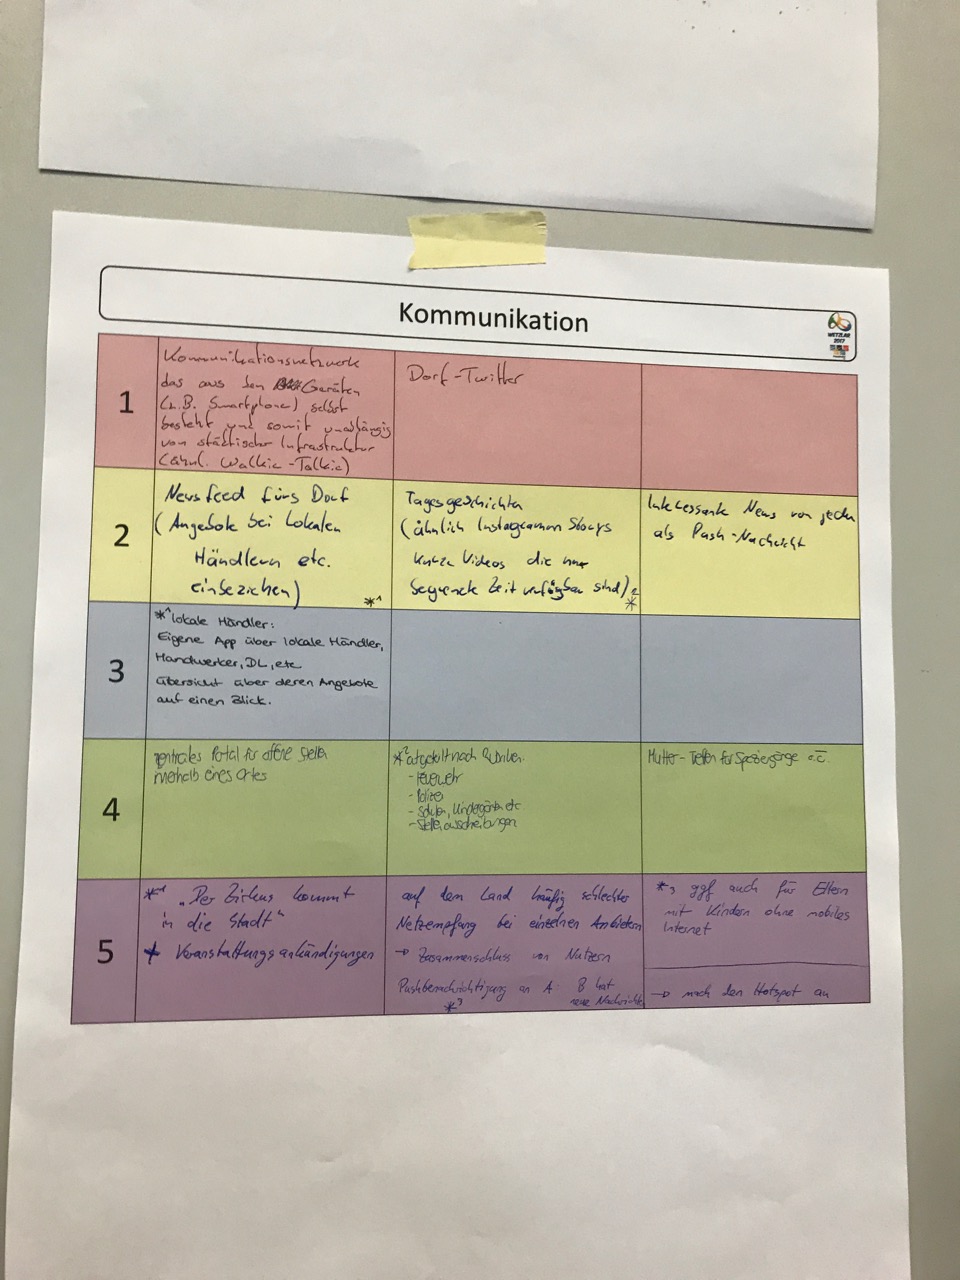 Kommunikation
WETZLAR
2017
1
Kommunikationsnetzwerk
das aus den Geräten
(z.B. Smartphone) selbst
besteht und somit unabhängig
von städtischer Infrastruktur
(ähnl. Walkie-Talkie)
Dorf-Twitter
2
Newsfeed fürs Dorf
(Angebote bei Lokalen
Händlern etc.
einbeziehen)
*1
Tagesgeschichten
(ähnlich Instagramm Storys
kurze Videos die nur
begrenzte Zeit verfügbar sind)
*2
Interessante News von jedem
als Push-Nachricht
3
*1 lokale Händler:
Eigene App über lokale Händler,
Handwerker, DL, etc
Übersicht über deren Angebote
auf einen Blick.
4
zentrales Portal für offene Stellen
innerhalb eines Ortes
*2 aufgeteilt nach Rubriken:
- Feuerwehr
- Polizei
- Schulen, Kindergärten etc
- Stellenausschreibungen
Mutter-Treffen für Spaziergänge o.ä.
5
*1 „Der Zirkus kommt
in die Stadt"
+ Veranstaltungsankündigungen
auf dem Land häufig schlechter
Netzempfang bei einzelnen Anbietern
→ Zusammenschluss von Nutzern
Pushbenachrichtigung an A: B hat
neue Nachricht
*3
*3 ggf auch für Eltern
mit Kindern ohne mobiles
Internet
→ mach den Hotspot an